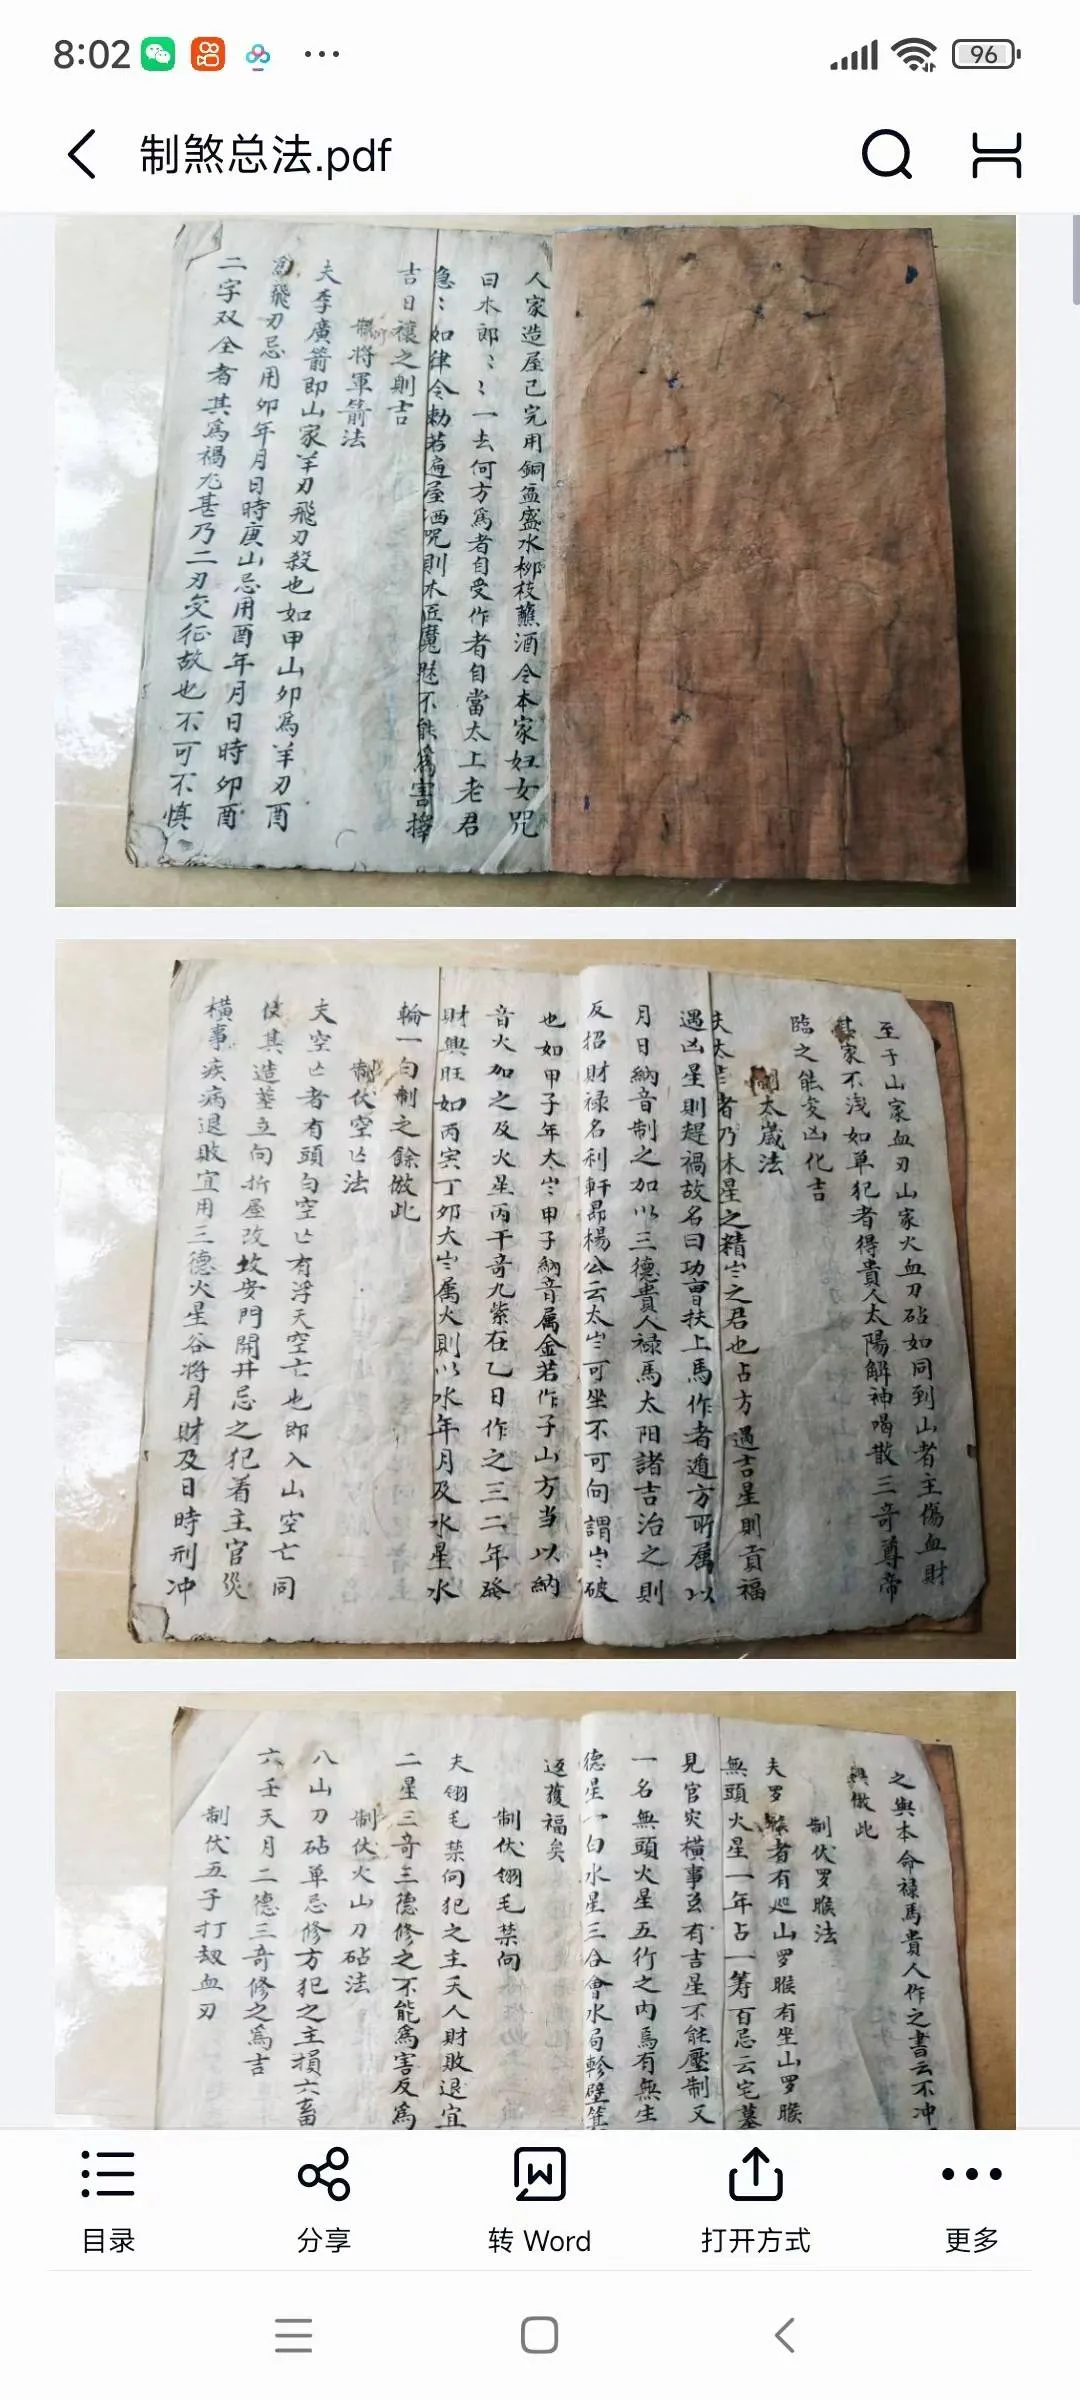 8:02
96
制煞总法.pdf
人家造屋已完用銅盆盛水柳枝蘸洒令本家妇女咒
曰木郎〻〻一去何方爲者自受作者自當太上老君
急〻如律令勅若遍屋洒咒則木匠魔魅不能爲害擇
吉日禳之則吉
制將軍箭法
夫李廣箭即山家羊刃飛刃殺也如甲山卯爲羊刃酉
爲飛刃忌用卯年月日時庚山忌用酉年月日時卯酉
二字双全者其爲禍尤甚乃二刃交征故也不可不慎
至于山家血刃山家火血刀砧如同到山者主傷血財
其家不浅如单犯者得貴人太陽解神喝散三奇尊帝
臨之能变凶化吉
制太歲法
夫太岁者乃木星之精岁之君也占方遇吉星則貢福
遇凶星則趕禍故名曰功曹扶上馬作者遁方所属以
月日納音制之加以三德貴人禄馬太阳諸吉治之則
反招財禄名利軒昂楊公云太岁可坐不可向謂岁破
也如甲子年太岁甲子納音属金若作子山方当以納
音火加之及火星丙干奇九紫在乙日作之三二年發
財興旺如丙寅丁卯太岁属火則以水年月及水星水
輪一白制之餘倣此
制伏空亡法
夫空亡者有頭白空亡有浮天空亡也即入山空亡同
伩其造塟立向折屋改坟安門開井忌之犯着主官災
橫事疾病退敗宜用三德火星谷将月財及日時刑冲
之與本命禄馬貴人作之書云不冲
興倣此
制伏罗睺法
夫罗睺者有廵山罗睺有坐山罗睺
無頭火星一年占一筹百忌云宅墓
見官灾橫事亟有吉星不能壓制又
一名無頭火星五行之内爲有無生
德星一白水星三合會水局軫壁箕
返獲福矣
制伏翎毛禁向
夫翎毛禁向犯之主夭人財敗退宜
二星三奇三德修之不能爲害反爲
制伏火山刀砧法
八山刀砧单忌修方犯之主損六畜
六壬天月二德三奇修之爲吉
制伏五子打刼血刃
目录
分享
转 Word
打开方式
更多